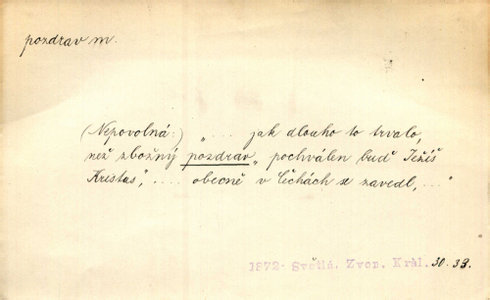 pozdrav m.
(Nepovolná:) „.... jak dlouho to trvalo,
než zbožný pozdrav „pochválen buď Ježíš
Kristus“, .... obecně v Čechách se zavedl,...“
1872- Světlá. Zvon. Král. 30.33.